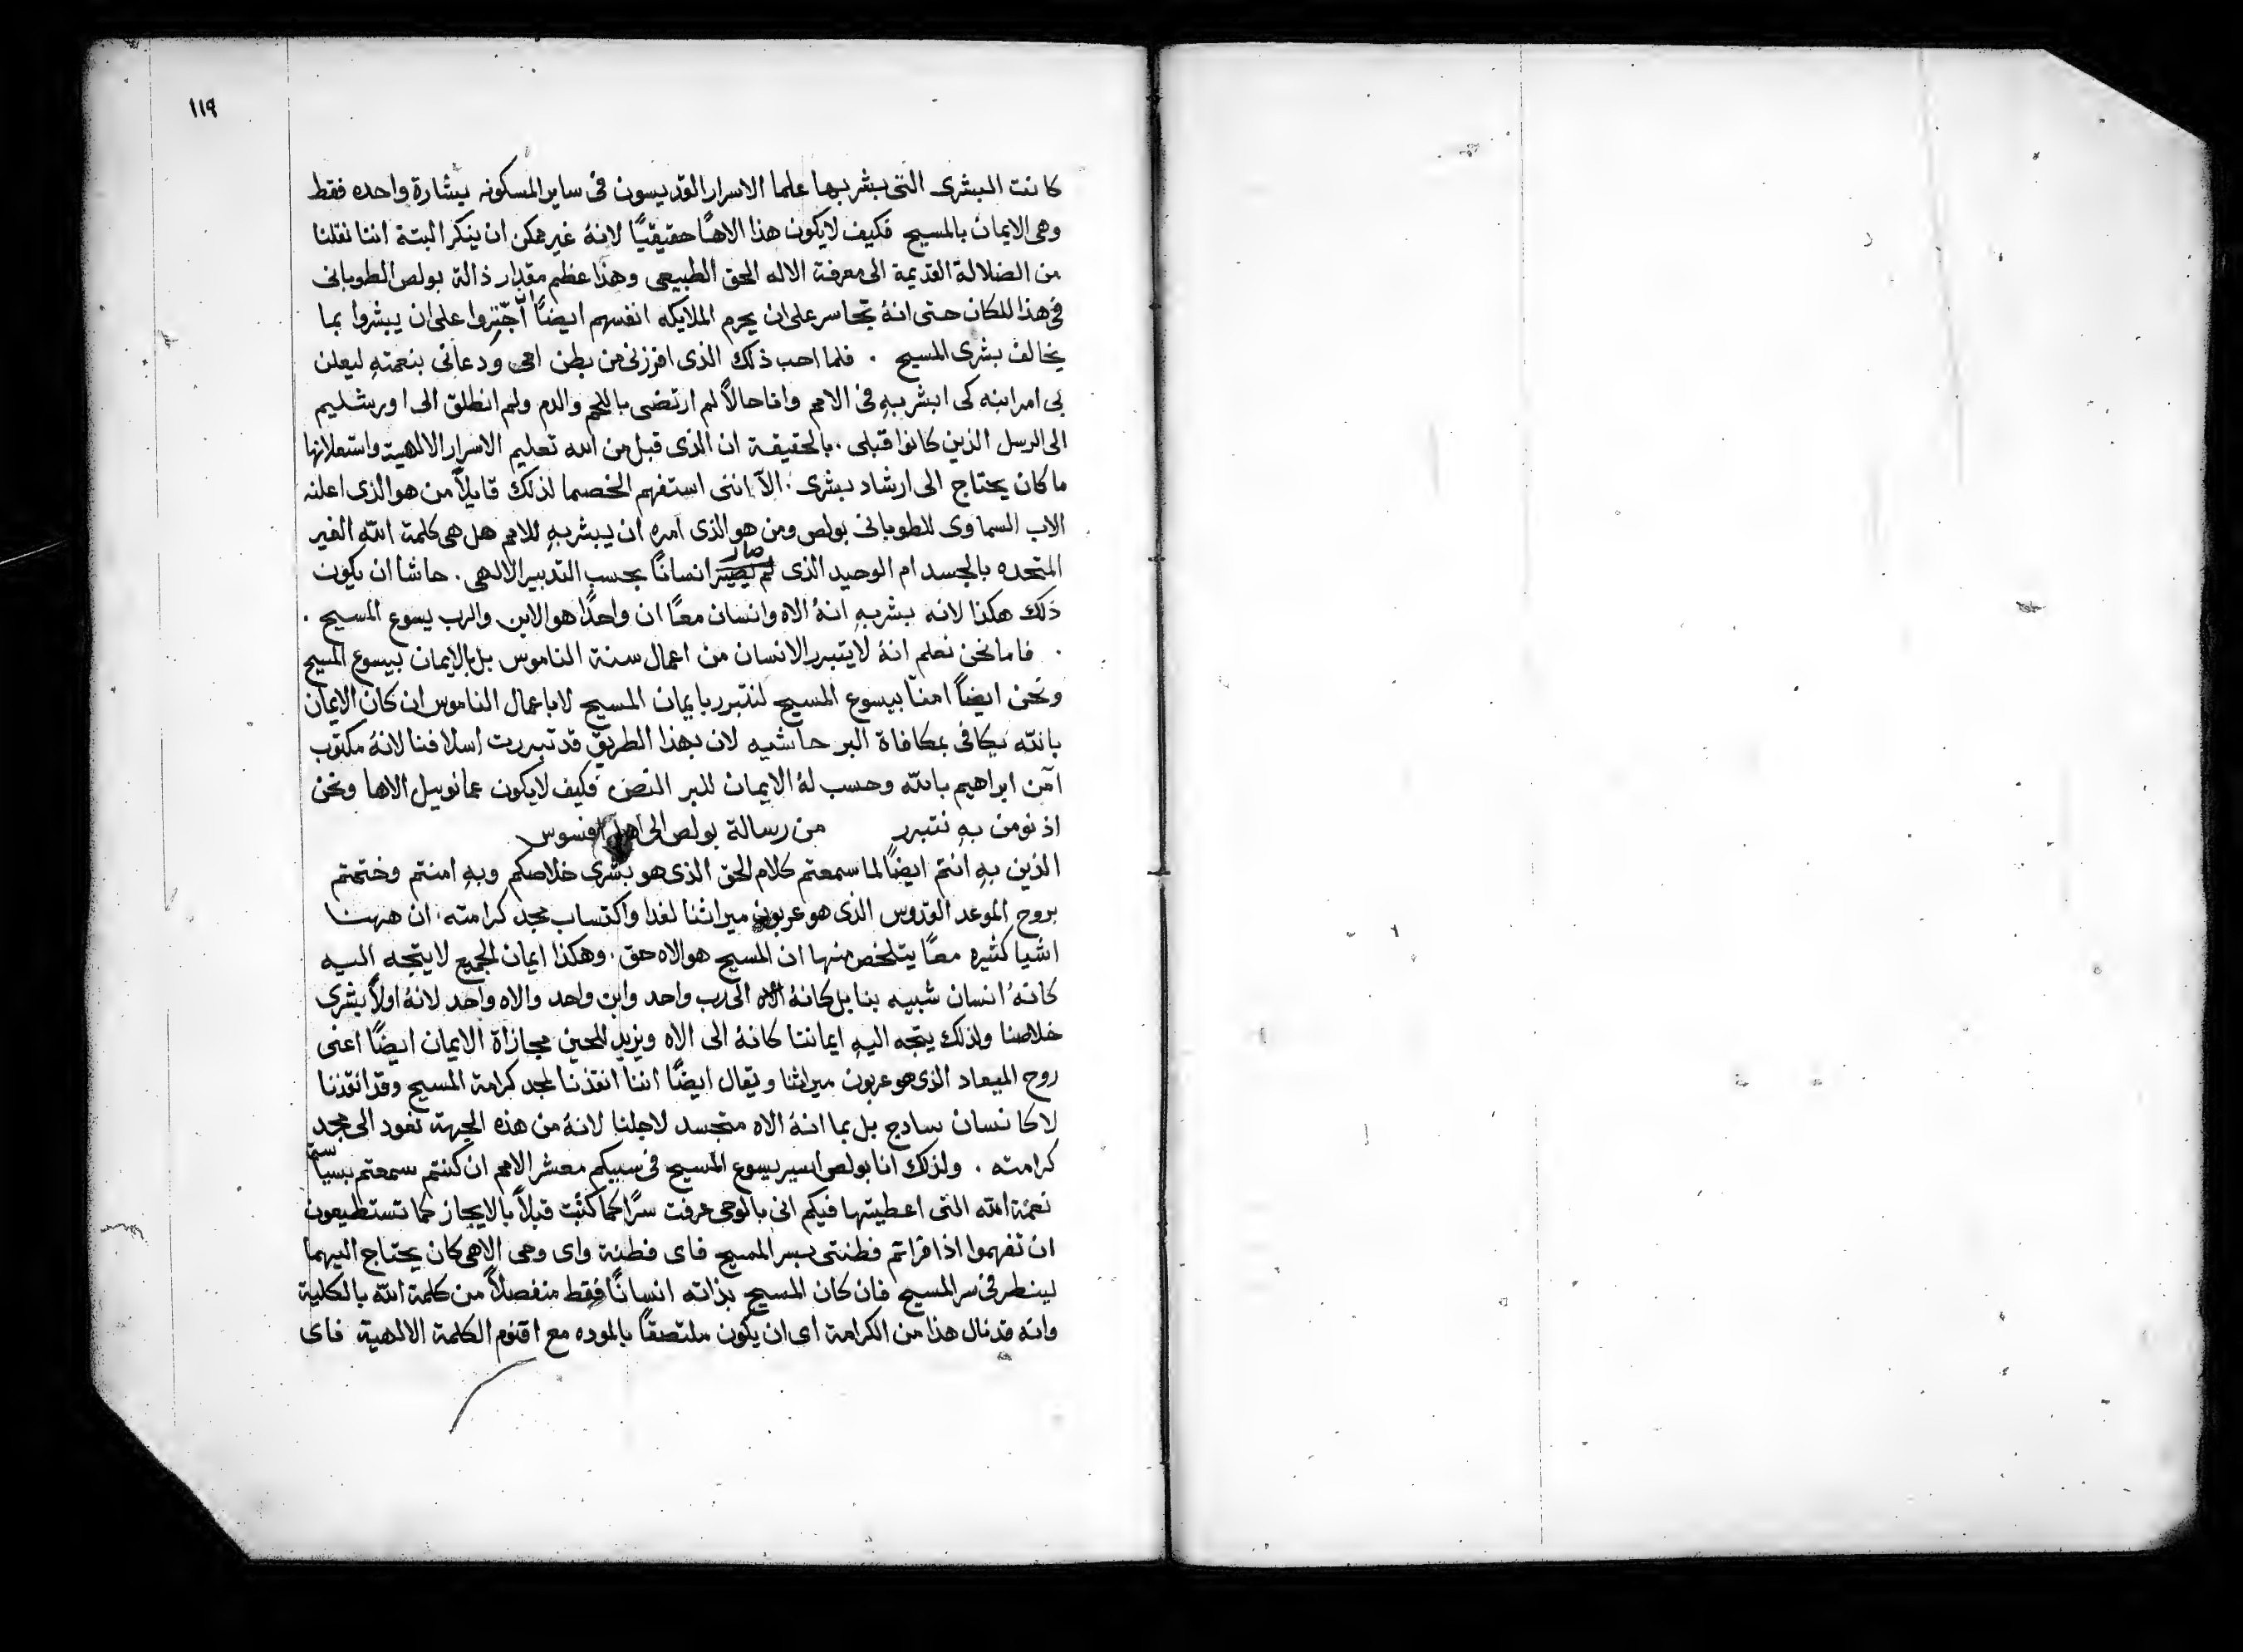 ١١٩
كانت البشرى التى بشر بها علما الاسرار القديسون فى ساير المسكونه بيشارة واحده فقط
وهى الايمان بالمسيح فكيف لايكون هذا الاهًا حقيقيًا لانهُ غير ممكن ان ينكر البتة اننا نقلنا
من الضلالة القديمة الى معرفة الاله الحق الطبيعى وهذا عظيم مقدار ذالة بولص الطوبانى
فى هذا المكان حتى انهُ تجاسر على ان يحرم الملايكه انفسهم ايضًا اجّتروا على ان يبشروا بما
يخالف بشرى المسيح . فلما احب ذلك الذى افرزنى من بطن امى ودعانى بنعمتهِ ليعلن
بى امر ابنه كى ابشر بهِ فى الامم وانا حالاً لم ارتضى باللحم والدم ولم انطلق الى اورشليم
الى الرسل الذين كانوا قبلى . بالحقيقة ان الذى قبل من الله تعليم الاسرار الالهية واستعلانها
ما كان يحتاج الى ارشاد بشرى . الآ اننى استفهم الخصما لذلك قايلاً من هو الذى اعلنه
الاب السماوى للطوبانى بولص ومن هو الذى امره ان يبشر بهِ للامم هل هى كلمة الله الغير
المتحده بالجسد ام الوحيد الذى لم يصير صار انسانًا بحسب التدبير الالهى . حاشا ان يكون
ذلك هكذا لانه بشر بهِ انهُ الاه وانسان معًا ان واحدًا هو الابن والرب يسوع المسيح .
. فاما نحن نعلم انهُ لايتبرر الانسان من اعمال سنة الناموس بل بالايمان بيسوع المسيح
ونحن ايضًا امنّا بيسوع المسيح لنتبرر بايمان المسيح لا باعمال الناموس ان كان الايمان
بالله يكافى بمكافاة البر حاشيه لان بهذا الطريق قد تبررت اسلافنا لانهُ مكتوب
آمن ابراهيم بالله وحسب لهُ الايمان للبر النص فكيف لايكون عمانوييل الاها ونحن
اذ نومن بهِ نتبرر من رسالة بولص الى اهل افسوس
الذين بهِ انتم ايضًا لما سمعتم كلام الحق الذى هو بشرى خلاصكم وبهِ امنتم وختمتم
بروح الموعد القدوس الذى هو عربون ميراثنا لفدا واكتساب مجد كرامته . ان ههنا
اشيا كثيره معًا يتلخص منها ان المسيح هو الاه حق . وهكذا ايمان الجميع لا يتجه اليه
كانهُ انسان شبيه بنا بل كانهُ الاه الى رب واحد وابن واحد والاه واحد لانهُ اولاً بشرى
خلاصنا ولذلك يتجه اليهِ ايماننا كانهُ الى الاه ويزيد للحين مجازاة الايمان ايضًا اعنى
روح الميعاد الذى هو عربون ميراثنا ويقال ايضًا اننا انقذنا لمجد كرامة المسيح وقد انقذنا
لا كانسان سادج بل بما انهُ الاه متجسد لاجلنا لانهُ من هذه الجهة نعود الى مجد
كرامته . ولذلك انا بولص اسير يسوع المسيح فى سبيكم معشر الامم ان كنتم سمعتم
نعمة الله التى اعطيتها فيكم انى بالوحى عرفت سرًا كما كتبت قبلاً بالايجاز كما تستطيعون
ان تفهموا اذا قراتم فطنتى بسر المسيح فاى فطنة واى وحى الاهى كان يحتاج اليهما
لينظر فى سر المسيح فان كان المسيح بذاته انسانًا فقط منفصلاً من كلمة الله بالكلية
وانه قد نال هذا من الكرامة اى ان يكون ملتصقًا بالموده مع اقنوم الكلمة الالهية فاى